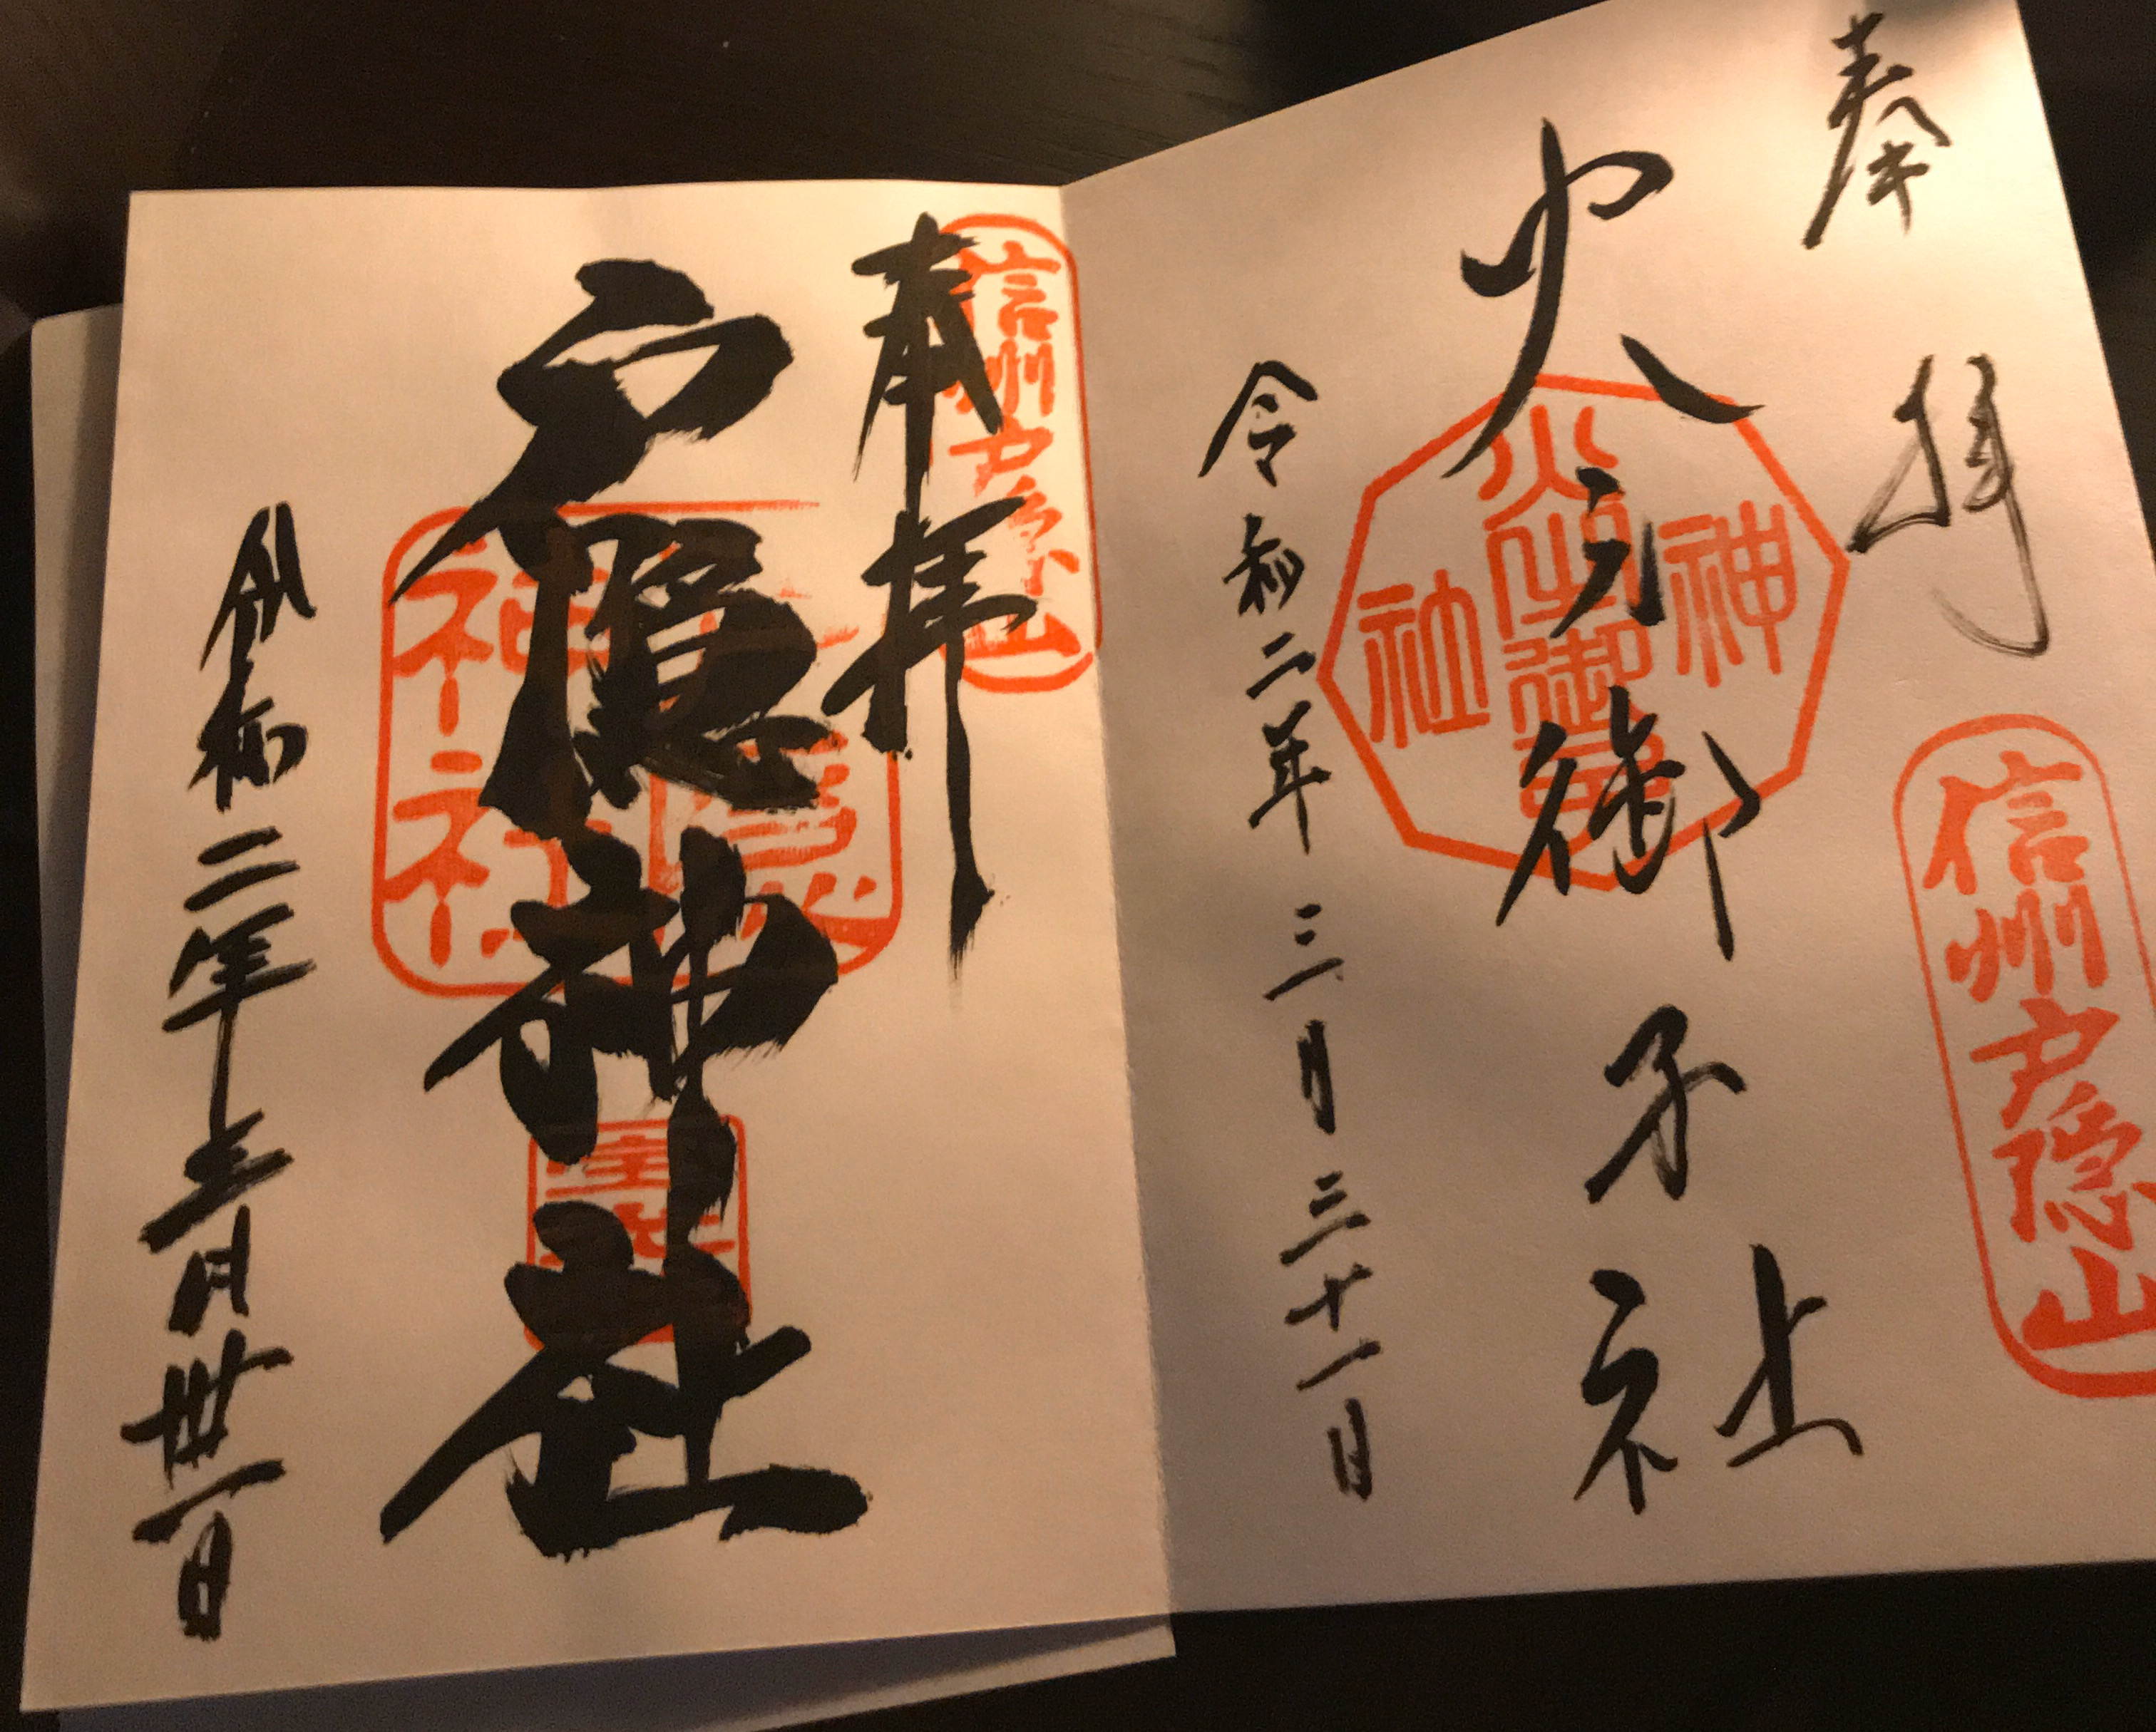 奉拝
信州戸隠山
火之御子社
火之御子
神
社
令和二年三月三十一日
奉拝
信州戸隠山
戸隠神社
隠
神社
令和二年三月卅一日